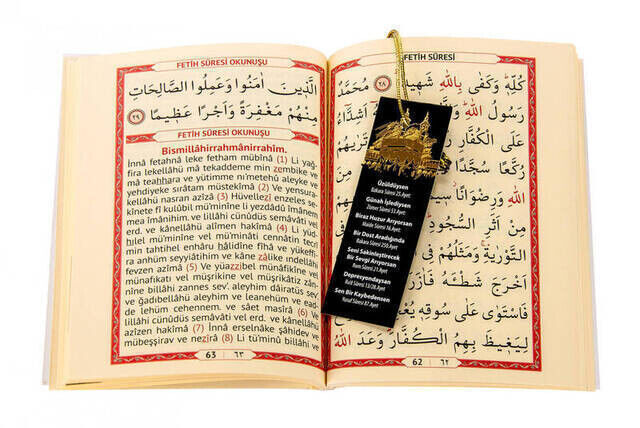 FETİH SÛRESİ
كُلِّهِ وَكَفٰى بِاللّٰهِ شَهِيدًا ﴿٢٨﴾ مُحَمَّدٌ
رَسُولُ اللّٰهِ اَشِدَّٓاءُ
عَلَى الْكُفَّارِ
رُكَّعًا سُجَّدًا
اللّٰهِ وَرِضْوَانًا
مِنْ اَثَرِ السُّجُودِ
التَّوْرٰيةِ وَمَثَلُهُمْ
اَخْرَجَ شَطْـَٔهُ فَاٰزَرَهُ
فَاسْتَوٰى عَلٰى سُوقِهِ
لِيَغِيظَ بِهِمُ الْكُفَّارَ وَعَدَ اللّٰهُ
62 ٦٢
Üzüldüysen
Bakara Sûresi 25.Ayet
Günah İşlediysen
Zümer Sûresi 53.Ayet
Biraz Huzur Arıyorsan
Maide Sûresi 16.Ayet
Bir Dost Aradığında
Bakara Sûresi 250.Ayet
Seni Sakinleştirecek
Bir Sevgi Arıyorsan
Rum Sûresi 21.Ayet
Depresyondaysan
Rad Sûresi 13/28.Ayet
Sen Bir Kaybedensen
Yusuf Sûresi 87.Ayet
FETİH SÛRESİ OKUNUŞU
الَّذِينَ اٰمَنُوا وَعَمِلُوا الصَّالِحَاتِ
مِنْهُمْ مَغْفِرَةً وَاَجْرًا عَظِيمًا ﴿٢٩﴾
FETİH SÛRESİ OKUNUŞU
Bismillâhirrahmânirrahîm.
İnnâ fetahnâ leke fetham mübînâ (1) Li yağ-
fira lekellâhü mâ tekaddeme min zembike ve
mâ teahhara ve yütimme ni'metehû aleyke ve
yehdiyeke sırâtam müstekîmâ (2) Ve yensura-
kellâhü nasran azîzâ (3) Hüvellezî enzeles se-
kînete fî kulûbil mü'minîne li yezdâdû îmânem
mea îmânihim, ve lillâhi cünûdüs semâvâti vel
erd, ve kânellâhü alîmen hakîmâ (4) Li yüd-
hılel mü'minîne vel mü'minâti cennâtin tecrî
min tahtihel enhâru hâlidîne fîhâ ve yükeffi-
ra anhüm seyyiâtihim ve kâne zâlike ındellâhi
fevzen azîmâ (5) Ve yüazzibel münâfikîne vel
münafikati vel müşrikîne vel müşrikâtiz zân-
nîne billâhi zannes sev'. aleyhim dâiratüs sev'
ve ğadıbellâhü aleyhim ve leanehüm ve ead-
de lehüm cehennem. ve sâet masîrâ (6) Ve
lillâhi cünûdüs semâvâti vel erd. ve kânellâhü
azîzen hakîmâ (7) İnnâ erselnâke şâhidev ve
mübeşşirav ve nezîrâ (8) Li tü'minû billâhi ve
63 ٦٣